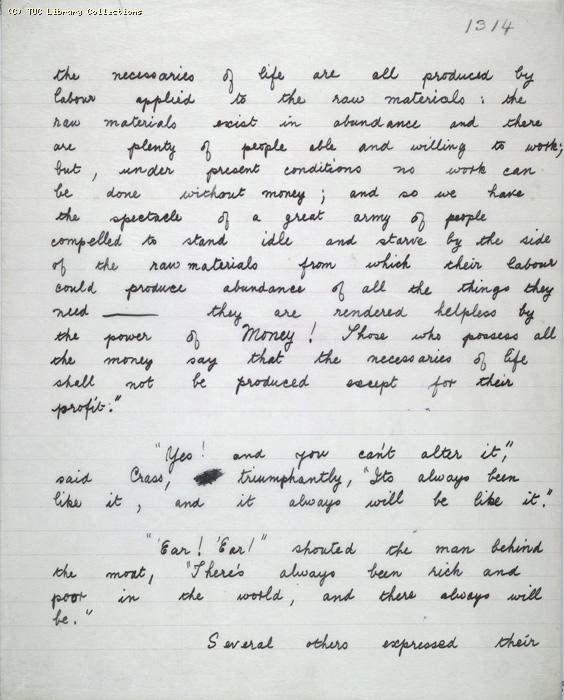 (C) TUC Library Collections
1314
the necessaries of life are all produced by
labour applied to the raw materials: the
raw materials exist in abundance and there
are plenty of people able and willing to work;
but, under present conditions no work can
be done without money; and so we have
the spectacle of a great army of people
compelled to stand idle and starve by the side
of the raw materials from which their labour
could produce abundance of all the things they
need —— they are rendered helpless by
the power of Money! Those who possess all
the money say that the necessaries of life
shall not be produced except for their
profit."
"Yes! and you can't alter it",
said Crass, triumphantly, "Its always been
like it, and it always will be like it."
"'Ear! 'Ear!" shouted the man behind
the moat, "There's always been rich and
poor in the world, and there always will
be."
Several others expressed their